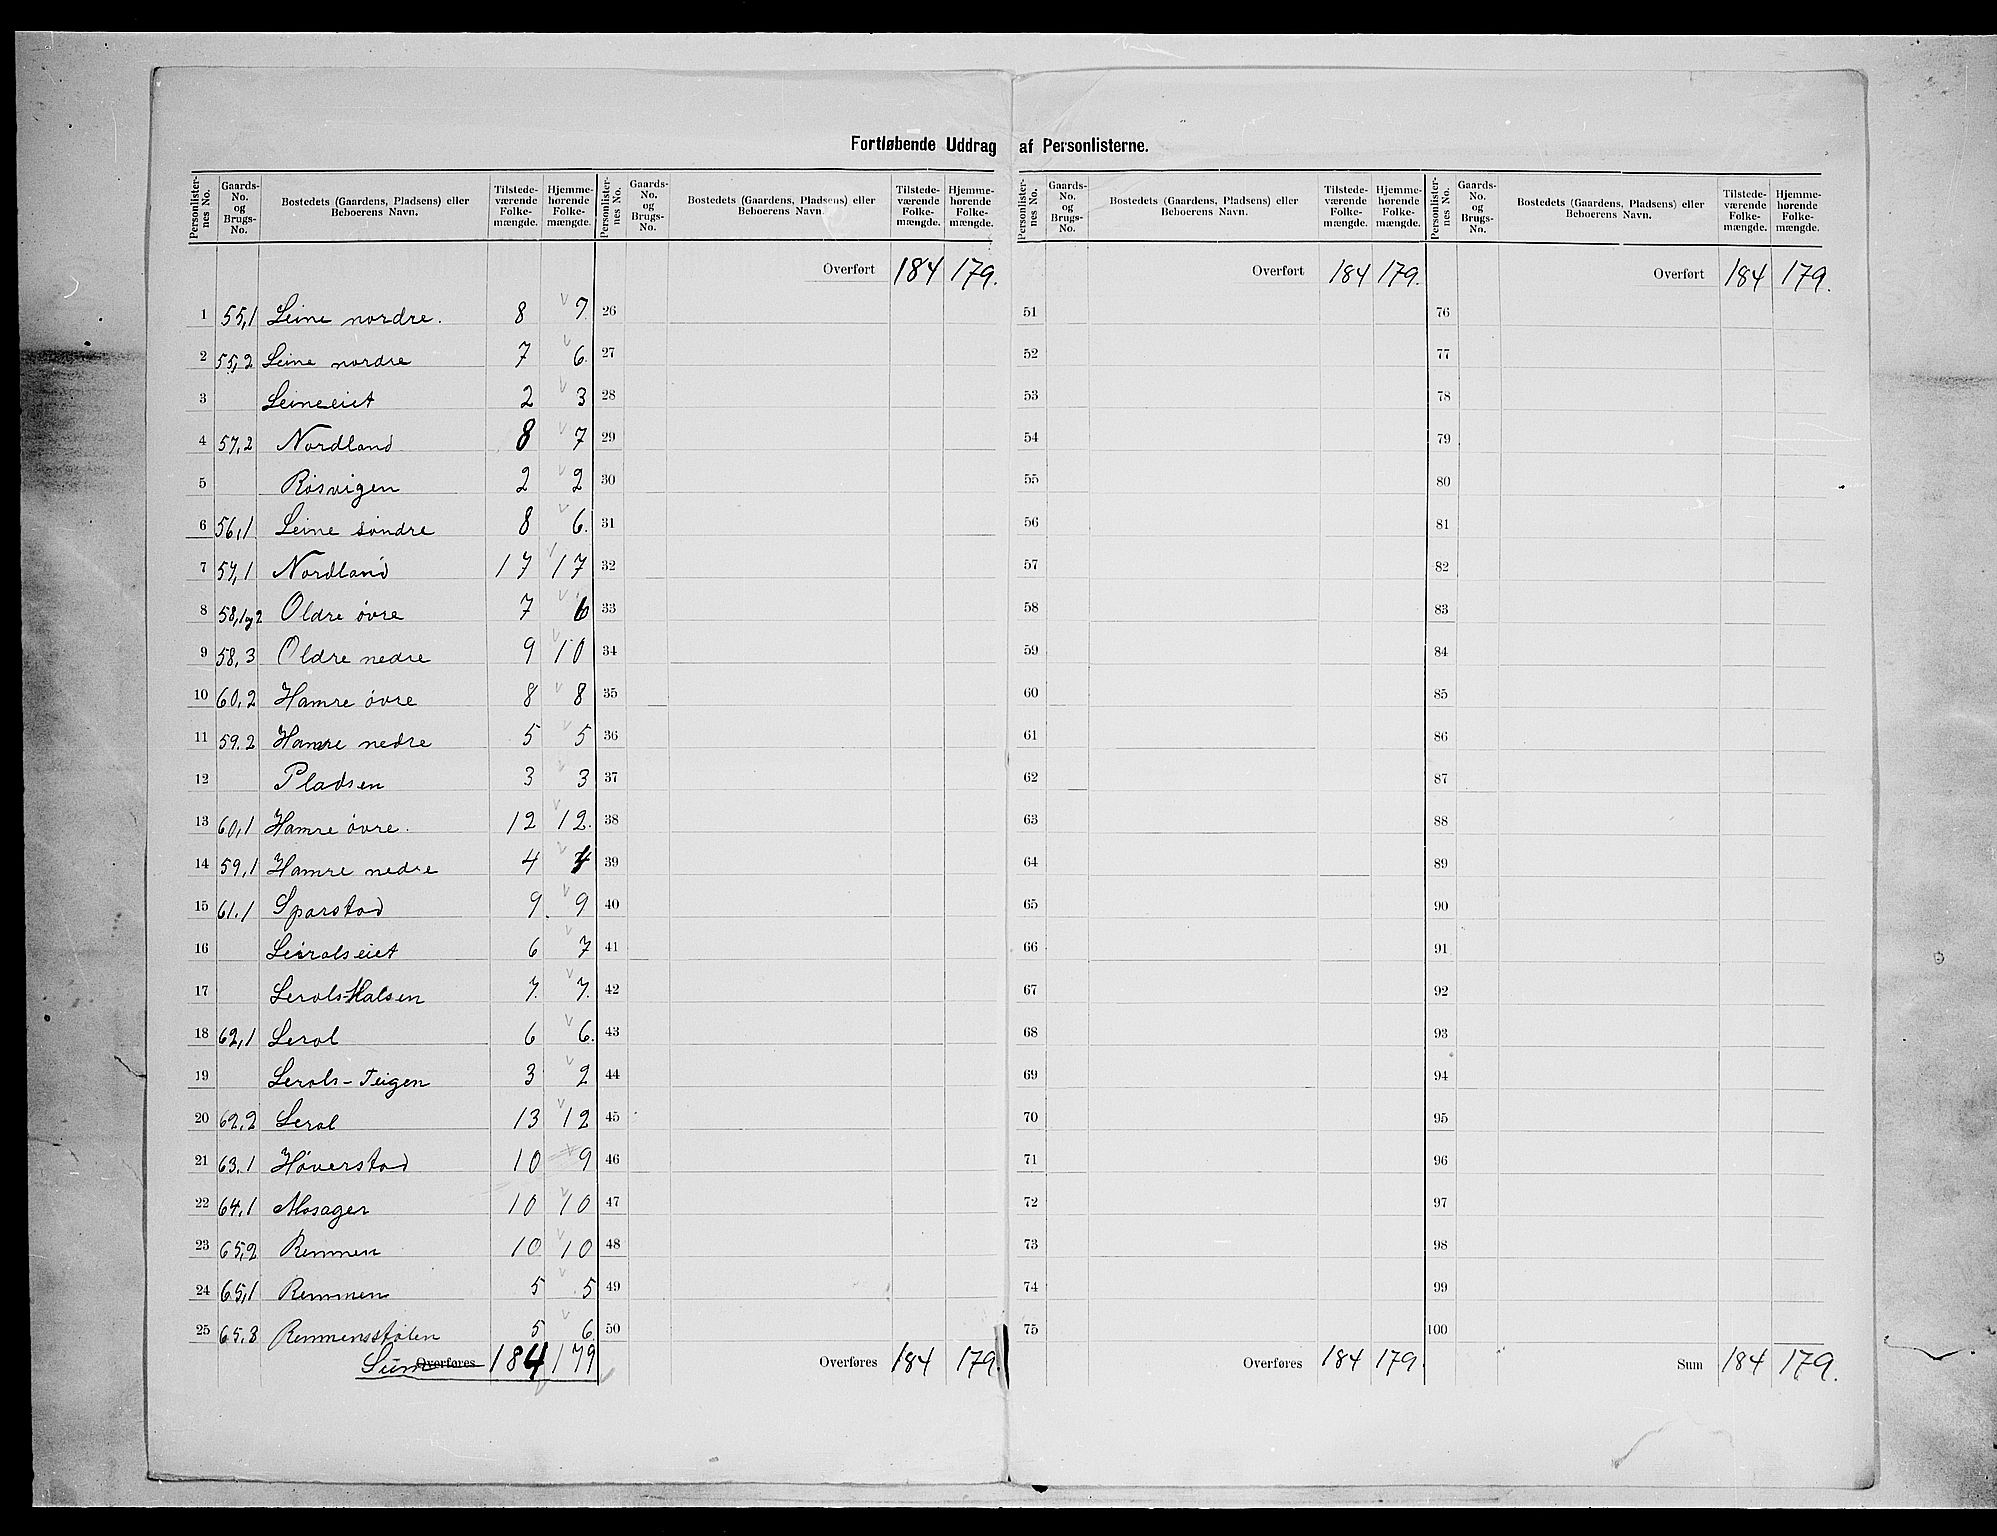 Fortløbende Uddrag af Personlisterne.
Personlister-nes No. | Gaards-No. og Brugs-No. | Bostedets (Gaardens, Pladsens) eller Beboerens Navn. | Tilstede-værende Folke-mængde. | Hjemme-hørende Folke-mængde. | Personlister-nes No. | Gaards-No. og Brugs-No. | Bostedets (Gaardens, Pladsens) eller Beboerens Navn. | Tilstede-værende Folke-mængde. | Hjemme-hørende Folke-mængde. | Personlister-nes No. | Gaards-No. og Brugs-No. | Bostedets (Gaardens, Pladsens) eller Beboerens Navn. | Tilstede-værende Folke-mængde. | Hjemme-hørende Folke-mængde. | Personlister-nes No. | Gaards-No. og Brugs-No. | Bostedets (Gaardens, Pladsens) eller Beboerens Navn. | Tilstede-værende Folke-mængde. | Hjemme-hørende Folke-mængde.
Overført 184 179. Overført 184 179. Overført 184 179.
1 55,1 Leine nordre. 8 7. 26 51 76
2 55,2 Leine nordre 7 6. 27 52 77
3 Leineeiet 2 3 28 53 78
4 57,2 Nordland 8 7 29 54 79
5 Røsvigen 2 2 30 55 80
6 56,1 Leine søndre 8 6. 31 56 81
7 57,1 Nordland 17 17 32 57 82
8 58,1og2 Oldre øvre 7 6 33 58 83
9 58,3 Oldre nedre 9 10 34 59 84
10 60,2 Hamre øvre 8 8 35 60 85
11 59.2 Hamre nedre 5 5 36 61 86
12 Pladsen 3 3 37 62 87
13 60,1 Hamre øvre. 12 12. 38 63 88
14 59,1 Hamre nedre 4 4 39 64 89
15 61.1 Sparstad 9. 9 40 65 90
16 Leiralseiet 6 7 41 66 91
17 Lerols-Halsen 7. 7. 42 67 92
18 62,1 Lerol 6 6. 43 68 93
19 Lerols-Teigen 3 2 44 69 94
20 62.2 Lerol 13 12 45 70 95
21 63.1 Høverstad 10 9 46 71 96
22 64,1 Mosager 10 10 47 72 97
23 65,2 Remmen 10 10 48 73 98
24 65,1 Remmen 5 5 49 74 99
25 65.3 Remmensstølen 5 6. 50 75 100
Sum Overføres 184 179 Overføres 184 179. Overføres 184 179. Sum 184 179.